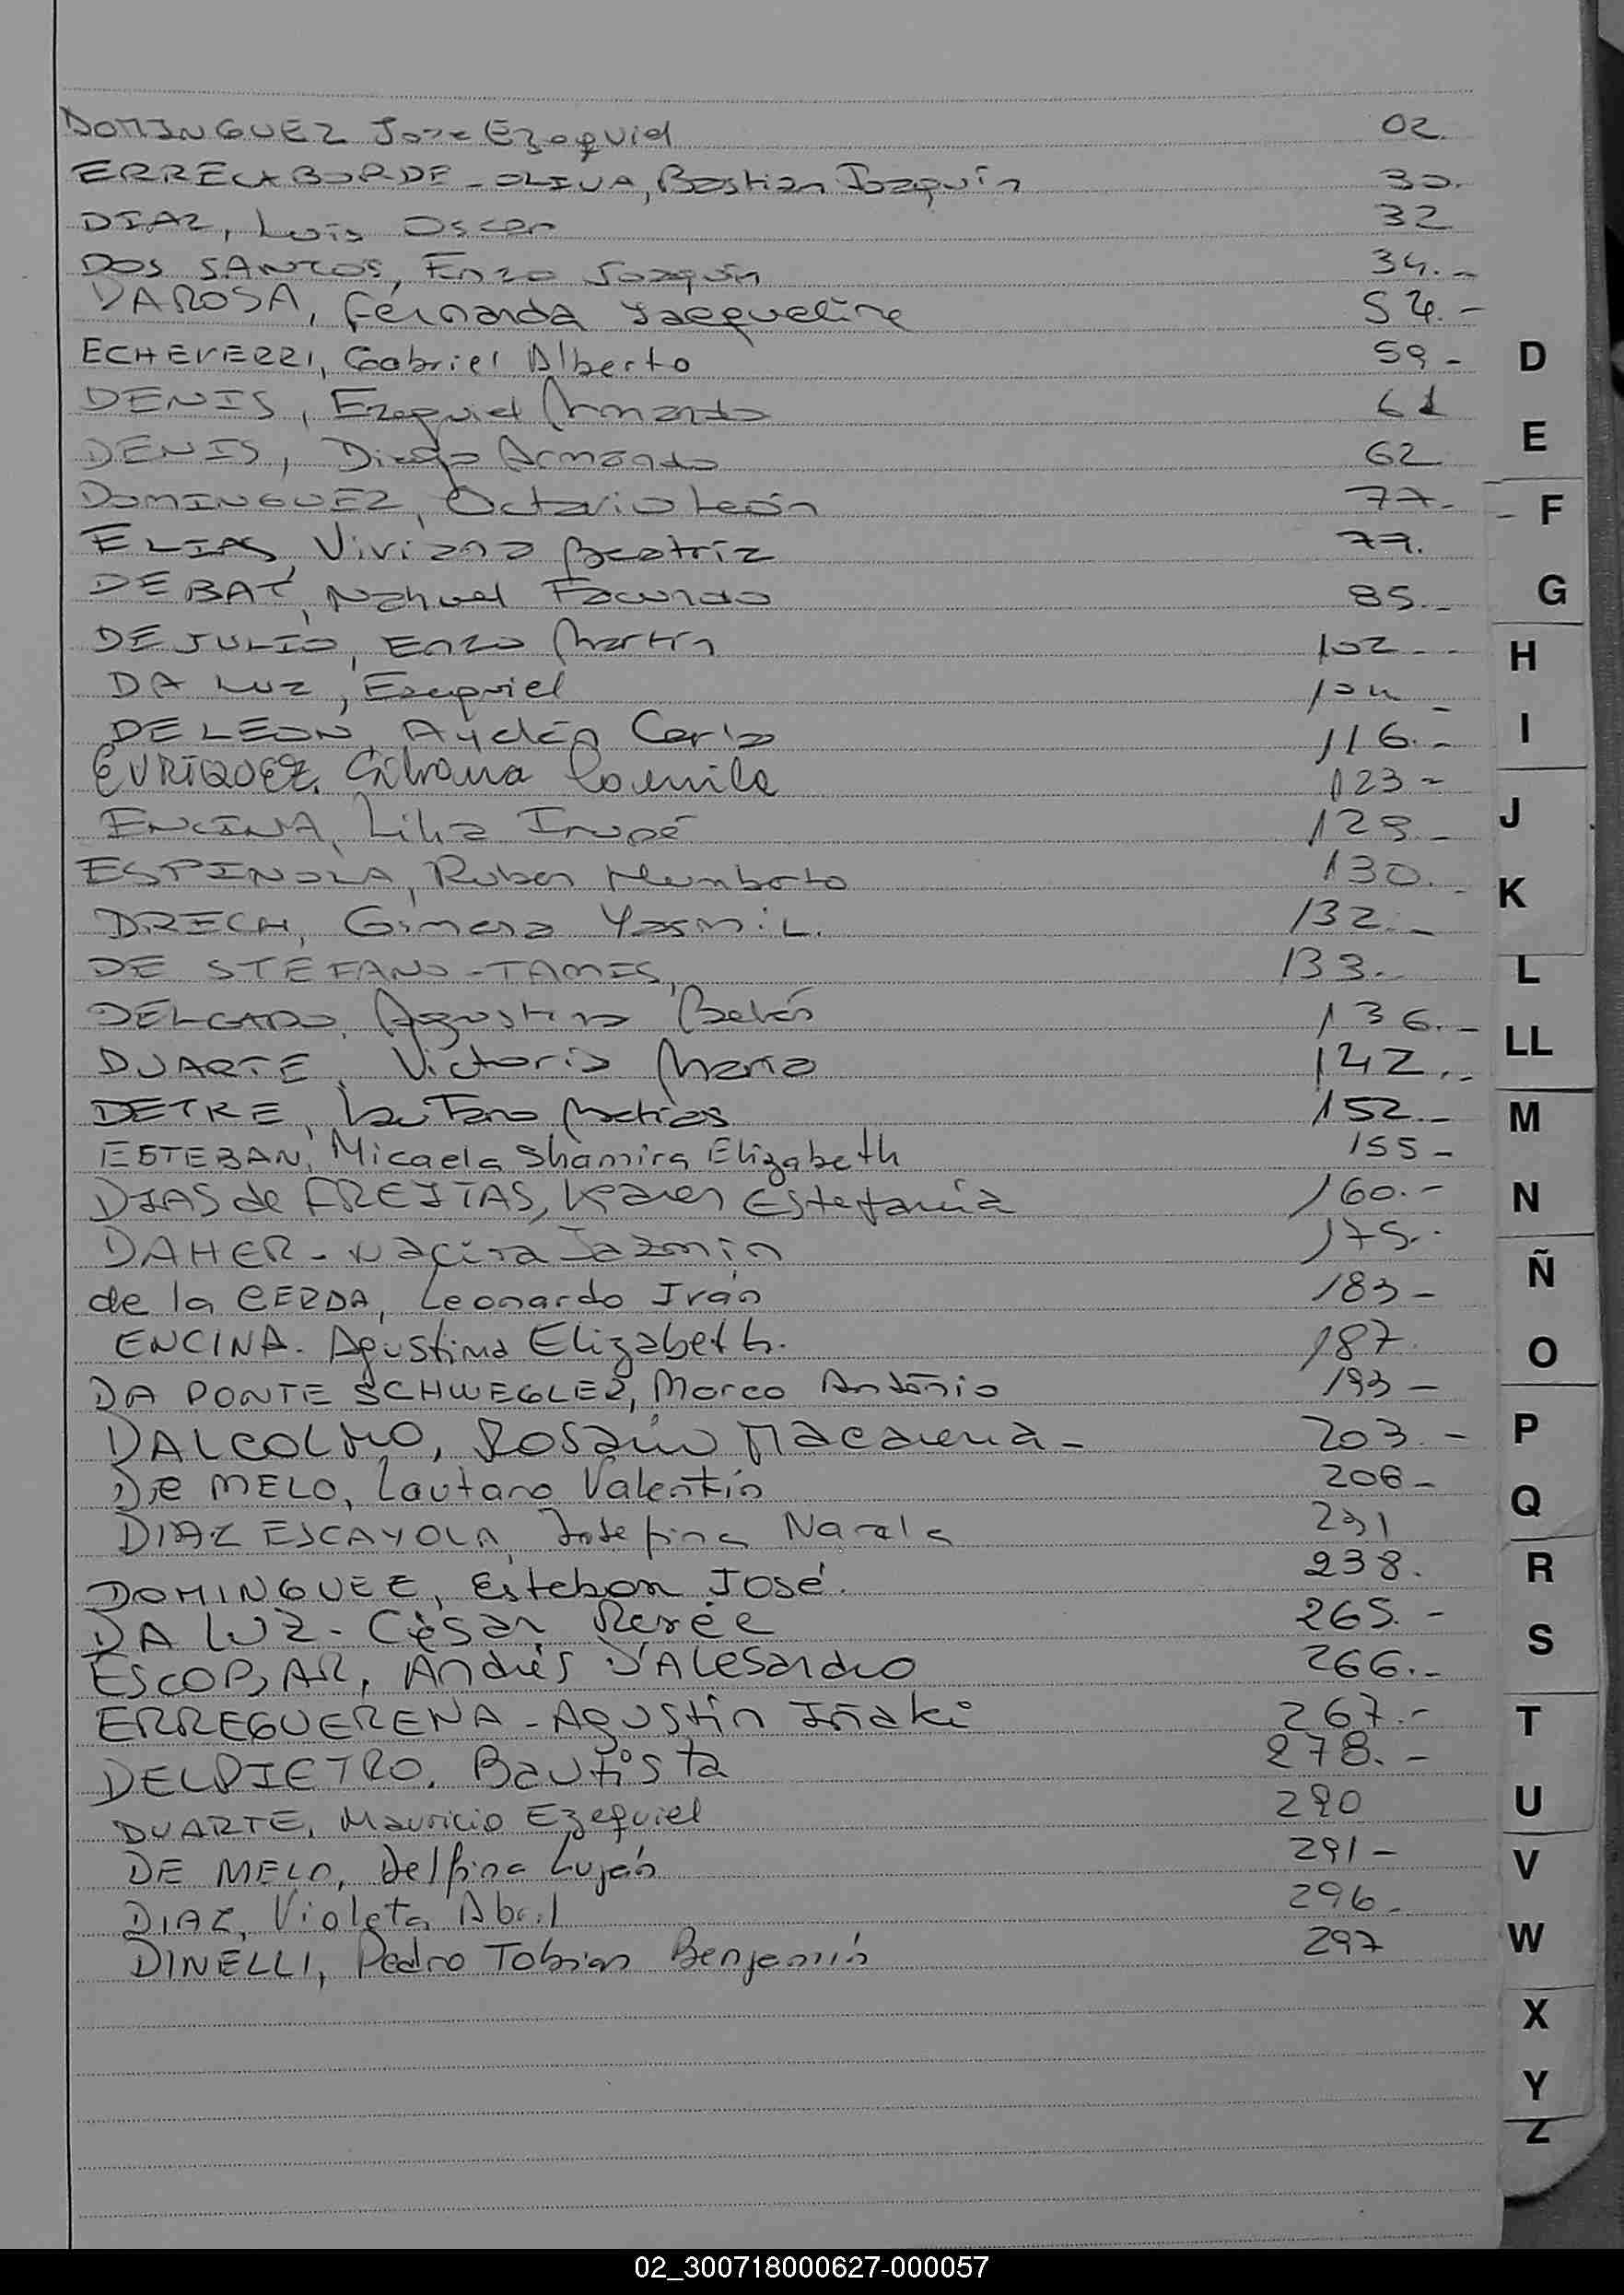 DOMINGUEZ Jose Ezequiel 02.
ERRECABORDE - OLIVA, Bastian Joaquín 30.
DIAZ, Luis Oscar 32
DOS SANTOS, Enzo Joaquín 34.-
DAROSA, Fernanda Jacqueline 54.-
ECHEVERRI, Gabriel Alberto 59-
DENIS, Ezequiel Armando 61
DENIS, Diego Armando 62
DOMINGUEZ, Octavio León 77.-
ELIAS, Viviana Beatriz 79.
DEBAT, Nahuel Facundo 85.-
DEJULIO, Enzo Martín 102--
DA LUZ, Ezequiel 104-
DE LEON, Aylén Carla 116.-
ENRIQUEZ, Silvana Camila 123-
ENCINA, Lilia Irupé 129.-
ESPINOLA, Ruben Humberto 130.-
DRECH, Gimena Yasmi L. 132.-
DE STEFANO-TAMIS, 133.-
DELGADO, Agustina Belén 136.-
DUARTE, Victoria María 142.-
DETRE, Lautaro Matías 152.-
ESTEBAN, Micaela Shamira Elizabeth 155-
DIAS de FREITAS, Karen Estefanía 160.-
DAHER - Nacira Jazmín 175.-
de la CERDA, Leonardo Iván 183-
ENCINA. Agustina Elizabeth. 187.
DA PONTE SCHWEGLER, Marco António 193-
DALCOLMO, Rosario Macarena- 203.-
De MELO, Lautaro Valentín 206-
DIAZ ESCAYOLA, Josefina Narela 231
DOMINGUEZ, Esteban José. 238.
DA LUZ - César Renée 265.-
ESCOBAR, Andrés D'Alesandro 266.-
ERREGUERENA - Agustín Iñaki 267.-
DELPIETRO, Bautista 278.-
DUARTE, Mauricio Ezequiel 290
DE MELO, Delfina Luján 291-
DIAZ, Violeta Abril 296.
DINELLI, Pedro Tobias Benjamín 297
D
E
F
G
H
I
J
K
L
LL
M
N
Ñ
O
P
Q
R
S
T
U
V
W
X
Y
Z
02_300718000627-000057